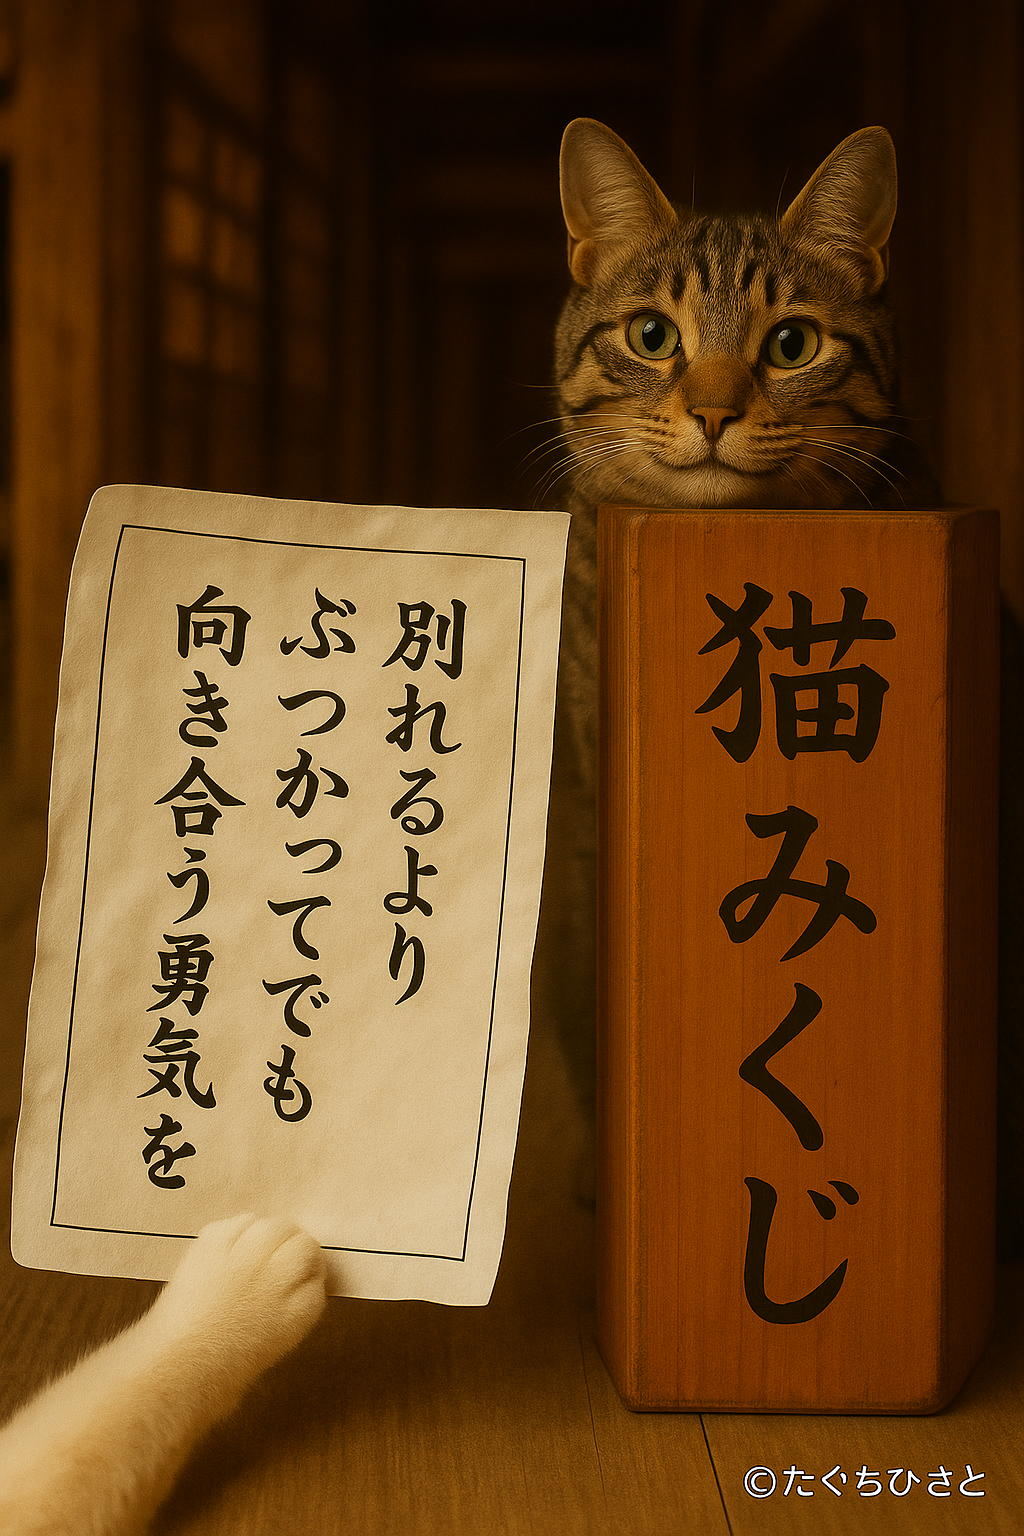 別れるより
ぶつかってでも
向き合う勇気を
猫みくじ
©たぐちひさと